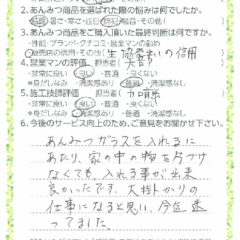 2. あんみつ商品を選ばれた際の悩みは何でしたか。
結露・暑さ・寒さ・西日・防犯・騒音・その他（　）
3. あんみつ商品をご購入頂いた最終判断は何ですか。
・性能・ブランド・クチコミ・営業マンの勧め
・販売店の信用・その他（生協さんの信用）
4. 営業マンの評価　担当者（　）
・非常に良い・良い・普通・良くない
・身だしなみ 清潔感あり・普通・清潔感なし
5. 施工技術評価　担当者（加藤）
・非常に良い・良い・普通・良くない
・身だしなみ 清潔感あり・普通・清潔感なし
6. 今後のサービス向上のため、ご意見をお聞かせ下さい。
あんみつガラスを入れるに
あたり、家の中の物を片づけ
なくても、入れる事が出来
良かったです、大掛かりの
仕事になると思い、今迄迷
ってました。